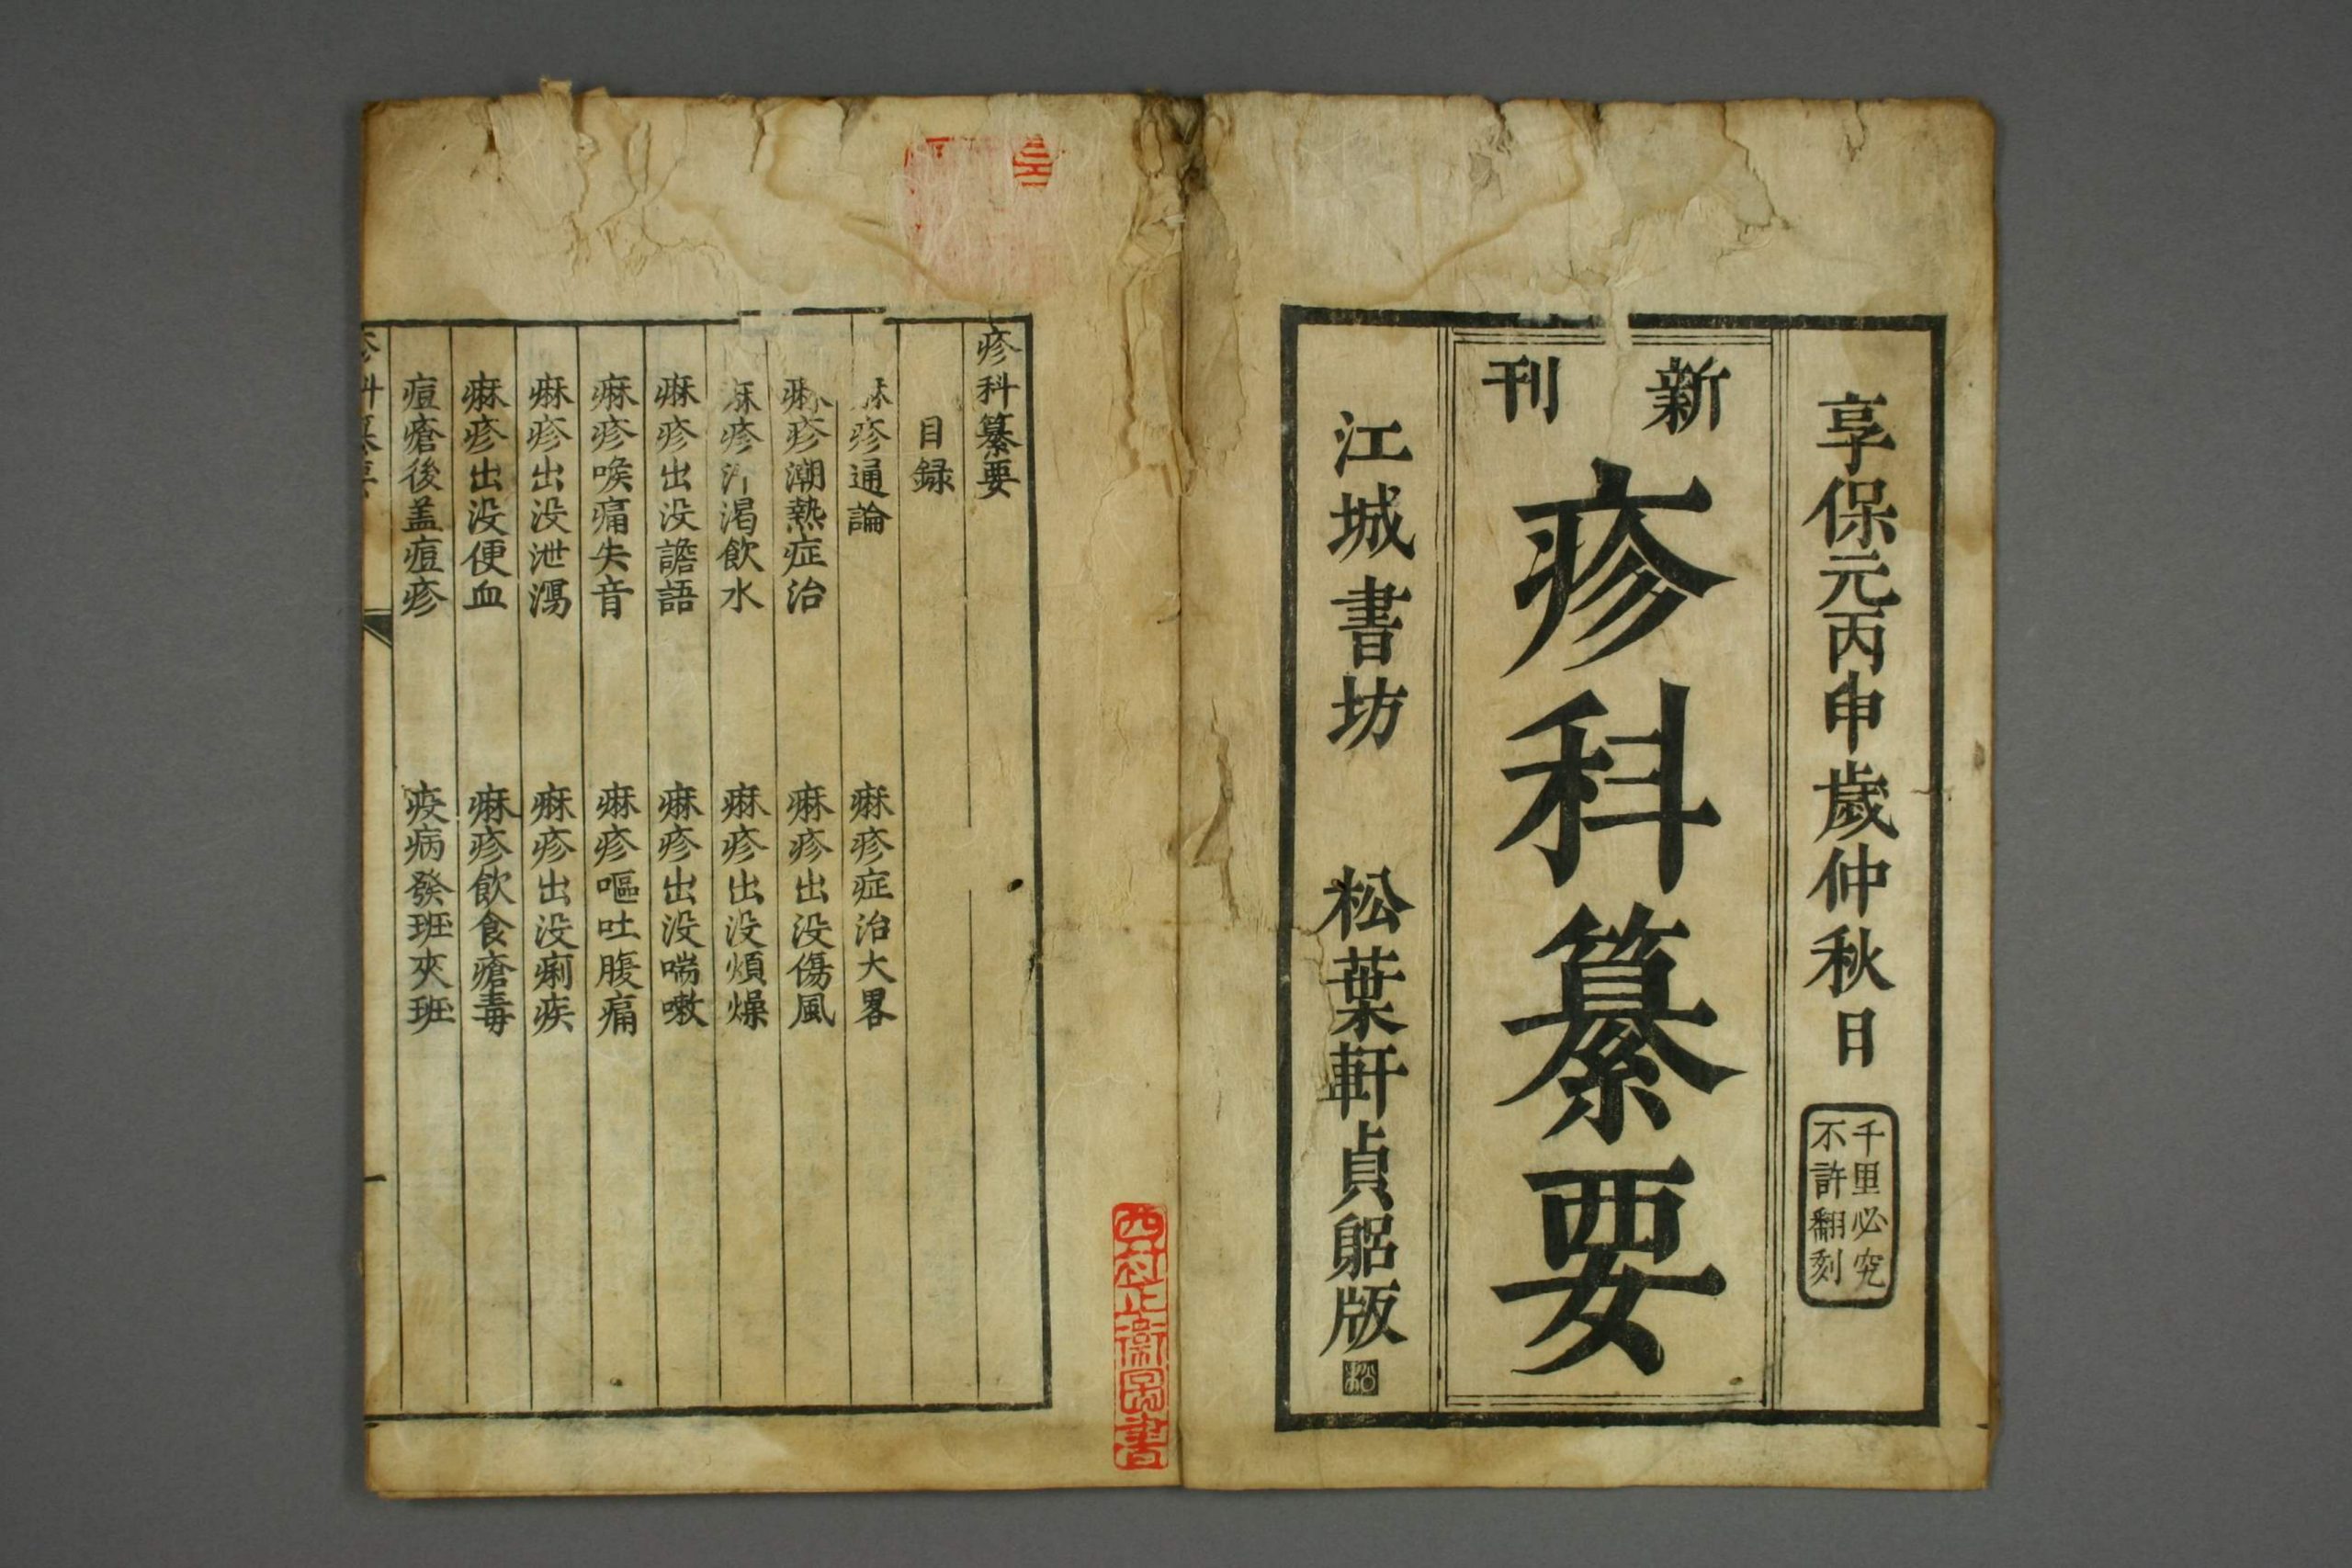 享保元丙申歲仲秋日
千里必究
不許翻刻
新刊
疹科纂要
江城書坊 松葉軒貞躳版
松
疹科纂要
目録
麻疹通論 麻疹症治大畧
麻疹潮熱症治 麻疹出没傷風
麻疹汗渴飲水 麻疹出没煩燥
麻疹出没譫語 麻疹出没喘嗽
麻疹喉痛失音 麻疹嘔吐腹痛
麻疹出没泄瀉 麻疹出没痢疾
麻疹出没便血 麻疹飲食瘡毒
痘瘡後盖痘疹 疫病發班夾班
疹科纂要
一
西村正衞圖書